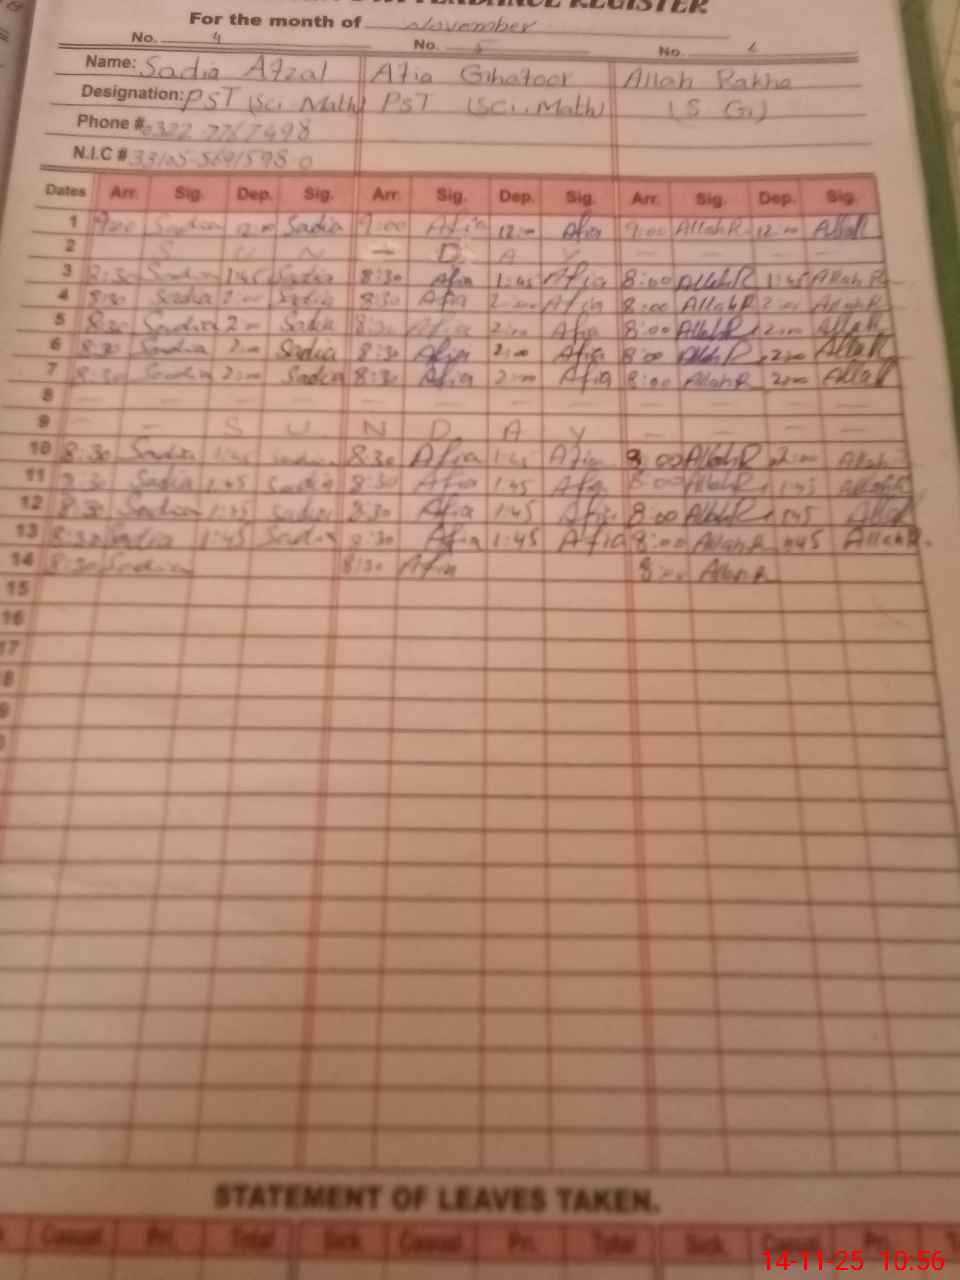 ATTENDANCE REGISTER
For the month of November
No. 4 No. 5 No. 6
Name: Sadia Afzal Afia Ghafoor Allah Rakha
Designation: PST (Sci. Math) PST (Sci. Math) (S.G)
Phone #
N.I.C #
Dates Arr. Sig. Dep. Sig. Arr. Sig. Dep. Sig. Arr. Sig. Dep. Sig.
1 9:00 Sadia Sadia 9:00 Afia 12:00 Afia 9:00 Allah R 12:00 Allah
2 S U N — D A Y
3 8:30 Sadia 1:45 Sadia 8:30 Afia 1:45 Afia 8:00 Allah R 1:45 Allah R
4 8:30 Sadia 2:00 Sadia 8:30 Afia 2:00 Afia 8:00 Allah R 2:00 Allah R
5 8:30 Sadia 2:00 Sadia 8:30 Afia 2:00 Afia 8:00 Allah R 2:00 Allah R
6 8:30 Sadia 2:00 Sadia 8:30 Afia 2:00 Afia 8:00 Allah R 2:00 Allah R
7 8:30 Sadia 2:00 Sadia 8:30 Afia 2:00 Afia 8:00 Allah R 2:00 Allah
8 — — — — — — — — — — — —
9 — — S U N D A Y — — — —
10 8:30 Sadia 1:45 Sadia 8:30 Afia 1:45 Afia 8:00 Allah R 2:00 Allah
11 8:30 Sadia 1:45 Sadia 8:30 Afia 1:45 Afia 8:00 Allah R 1:45 Allah R
12 8:30 Sadia 1:45 Sadia 8:30 Afia 1:45 Afia 8:00 Allah R 1:45 Allah
13 8:30 Sadia 1:45 Sadia 8:30 Afia 1:45 Afia 8:00 Allah R 1:45 Allah R.
14 8:30 Sadia 8:30 Afia 8:00 Allah R
15
16
17
8
9
STATEMENT OF LEAVES TAKEN.
Casual Pri. Total Sick Casual Pri. Total Sick Casual Pri.
14-11-25 10:56